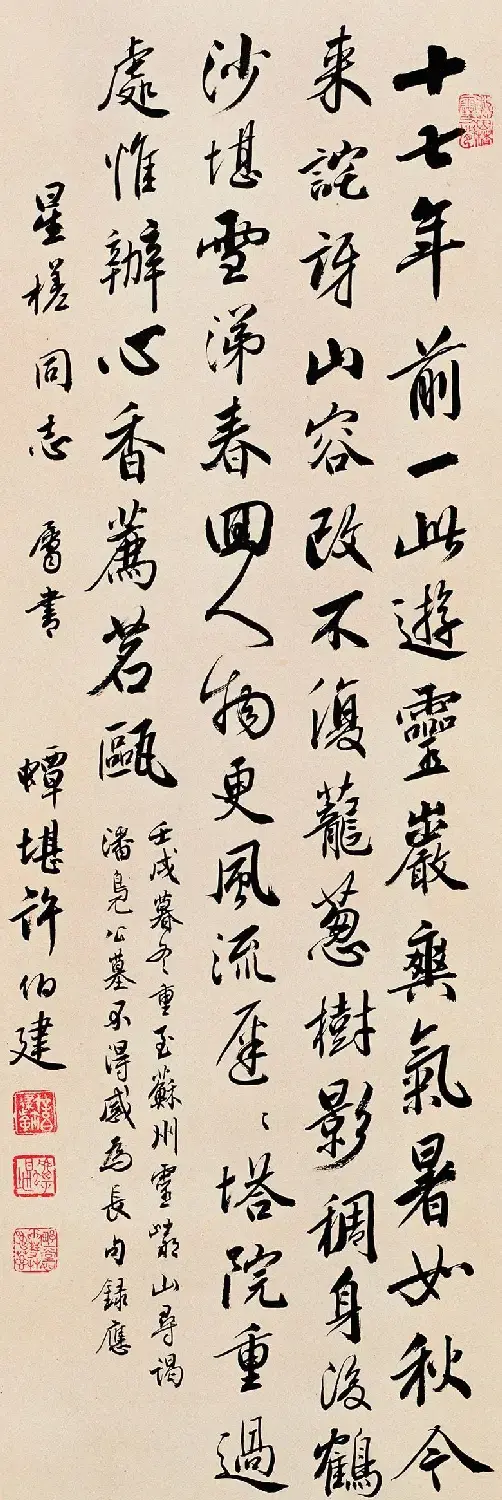 十七年前一此遊靈巖爽氣暑如秋今
来詫訝山容改不復蘢蔥樹影稠身後鶴
沙堪雪涕春回人物更風流遲〻塔院重過
處惟辦心香薦茗甌
壬戌暮冬重至蘇州靈巖山尋謁
潘鳧公墓不得感為長句録應
星槎同志 屬書 蟫堪許伯建